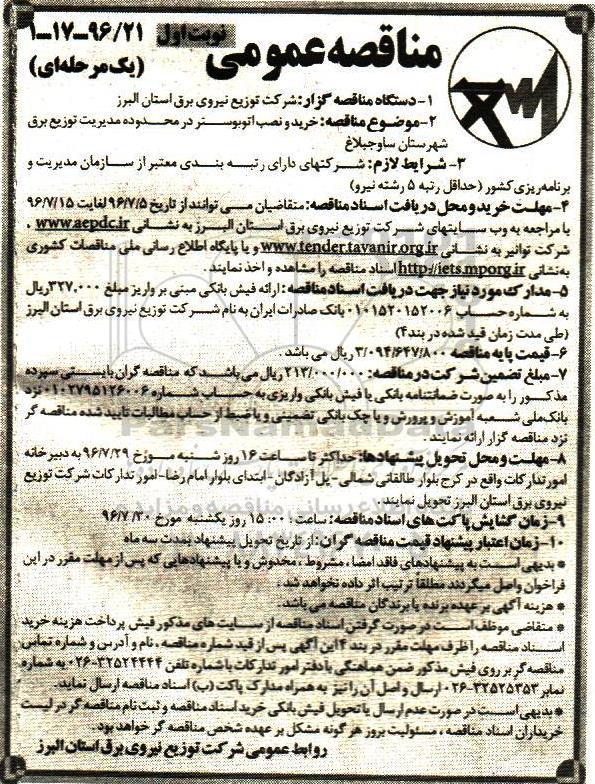 مناقصه عمومی
نوبت اول
۹۶/۲۱-۱۷-۹
(یک مرحله‌ای)
۱-دستگاه مناقصه گزار: شرکت توزیع نیروی برق استان البرز
۲-موضوع مناقصه: خرید و نصب اتوبوستر در محدوده مدیریت توزیع برق
شهرستان ساوجبلاغ
۳- شرایط لازم: شرکتهای دارای رتبه بندی معتبر از سازمان مدیریت و
برنامه‌ریزی کشور (حداقل رتبه ۵ رشته نیرو)
۴-مهلت خرید و محل دریافت اسناد مناقصه: متقاضیان می توانند از تاریخ ۹۶/۷/۵ لغایت ۹۶/۷/۱۵
با مراجعه به وب سایتهای شرکت توزیع نیروی برق استان البرز به نشانی www.aepdc.ir ،
شرکت توانیر به نشانی www.tender.tavanir.org.ir و یا پایگاه اطلاع رسانی ملی مناقصات کشوری
به‌نشانی http://iets.mporg.ir اسناد مناقصه را مشاهده و اخذ نمایند.
۵-مدارک مورد نیاز جهت دریافت اسناد مناقصه: ارائه فیش بانکی مبنی بر واریز مبلغ ۳۲۷،۰۰۰ ریال
به شماره حساب ۰۱۰۱۵۲۰۱۵۲۰۰۶ بانک صادرات ایران به نام شرکت توزیع نیروی برق استان البرز
(طی مدت زمان قید شده در بند۴)
۶-قیمت پایه مناقصه ۳/۰۹۴/۶۴۷/۸۰۰ ریال می باشد.
۷-مبلغ تضمین شرکت در مناقصه: ۲۱۳/۰۰۰/۰۰۰ ریال می‌باشد که مناقصه گران بایستی سپرده
مذکور را به صورت ضمانتنامه بانکی یا فیش بانکی واریزی به حساب شماره ۰۱۰۲۷۹۵۱۲۶۰۰۶ نزد
بانک ملی شعبه آموزش و پرورش و یا چک بانکی تضمینی و یا ضبط از حساب مطالبات تایید شده مناقصه گر
نزد مناقصه گزار ارائه نمایند.
۸-مهلت و محل تحویل پیشنهادها: حداکثر تا ساعت ۱۶ روز شنبه مورخ ۹۶/۷/۲۹ به دبیرخانه
امور تدارکات واقع در کرج بلوار طالقانی شمالی-پل آزادگان-ابتدای بلوار امام رضا-امور تدارکات شرکت توزیع
نیروی برق استان البرز تحویل نمایند.
۹-زمان گشایش پاکت های اسناد مناقصه: ساعت ۱۵:۰۰ روز یکشنبه مورخ ۹۶/۷/۳۰
۱۰-زمان اعتبار پیشنهاد قیمت مناقصه گران: از تاریخ تحویل پیشنهاد بمدت سه ماه
* بدیهی است به پیشنهادهای فاقد امضا، مشروط، مخدوش و یا پیشنهادهایی که پس از مهلت مقرر در این
فراخوان واصل میگردند مطلقاً ترتیب اثر داده نخواهد شد.
* هزینه آگهی بر عهده برنده یا برندگان مناقصه می باشد.
* متقاضی موظف است در صورت گرفتن اسناد مناقصه از سایت های مذکور فیش پرداخت هزینه خرید
اسناد مناقصه را ظرف مهلت مقرر در بند ۴ این آگهی پس از قید شماره مناقصه، نام و آدرس و شماره تماس
مناقصه گر بر روی فیش مذکور ضمن هماهنگی با دفتر امور تدارکات با شماره تلفن ۳۲۵۲۴۴۴۴-۰۲۶ به شماره
نمابر ۳۲۵۲۵۳۵۳-۰۲۶ ارسال و اصل آن را نیز به همراه مدارک پاکت (ب) اسناد مناقصه ارسال نماید.
* بدیهی است در صورت عدم ارسال یا تحویل فیش بانکی خرید اسناد مناقصه و ثبت نام مناقصه گر در لیست
خریداران اسناد مناقصه، مسئولیت بروز هر گونه مشکل بر عهده شخص مناقصه گر خواهد بود.
روابط عمومی شرکت توزیع نیروی برق استان البرز